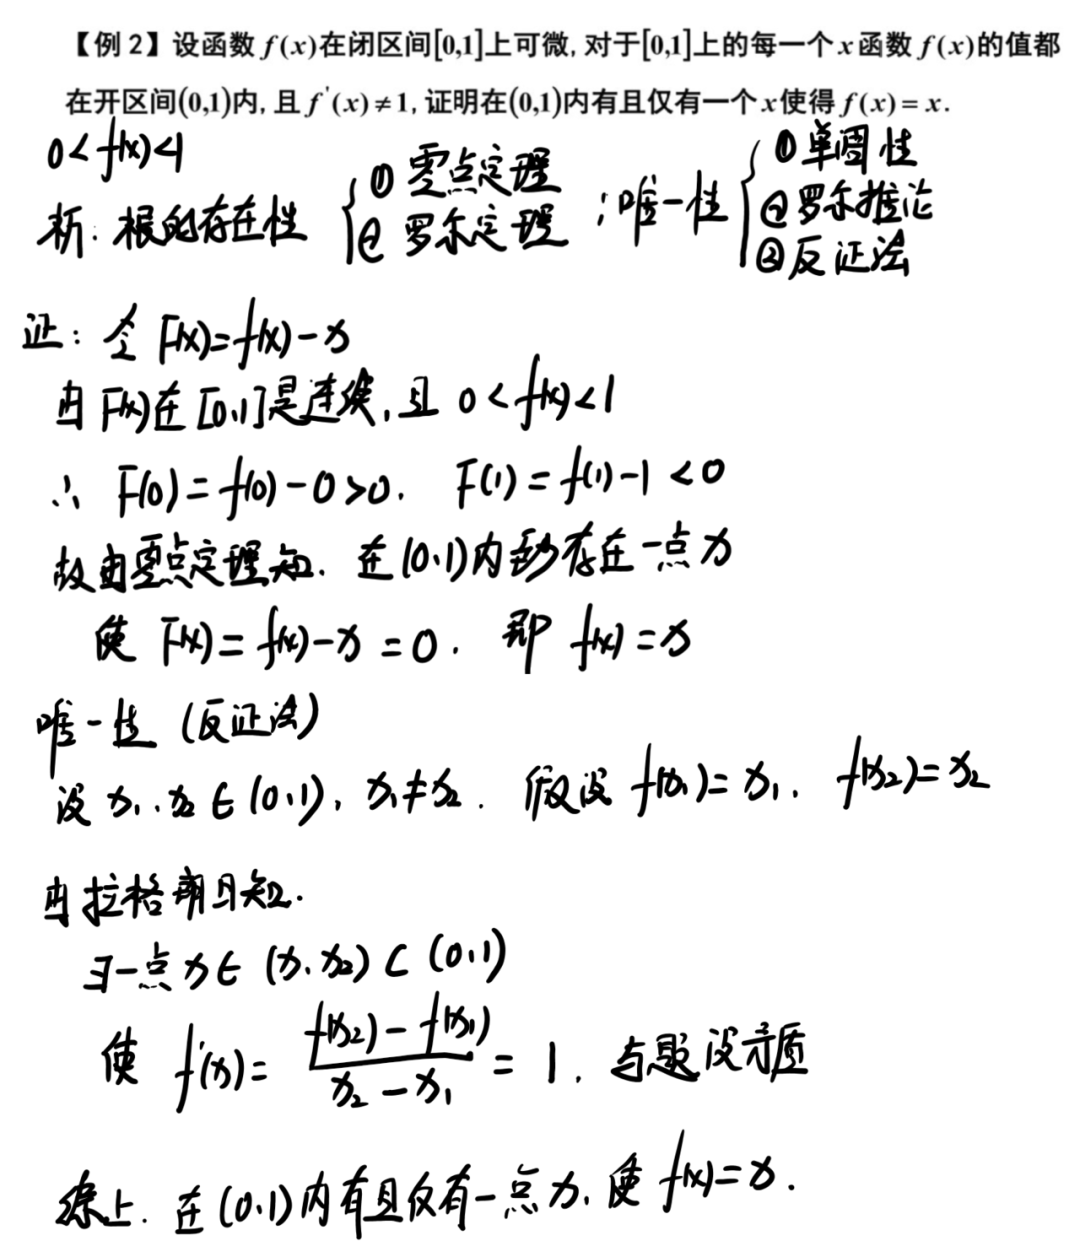 【例 2】设函数 f(x)在闭区间[0,1]上可微, 对于[0,1]上的每一个 x 函数 f(x)的值都
在开区间(0,1)内, 且 f'(x) ≠ 1, 证明在(0,1)内有且仅有一个 x 使得 f(x) = x.
0<f(x)<1
析: 根的存在性 { ① 零点定理 ② 罗尔定理 ; 唯一性 { ① 单调性 ② 罗尔推论 ③ 反证法
证: 令 F(x)=f(x)-x
由 F(x)在[0,1]是连续, 且 0<f(x)<1
∴ F(0)=f(0)-0>0. F(1)=f(1)-1<0
故由零点定理知. 在(0,1)内至少存在一点x
使 F(x)=f(x)-x=0. 即 f(x)=x
唯一性 (反证法)
设 x₁, x₂ ∈ (0,1), x₁≠x₂. 假设 f(x₁)=x₁, f(x₂)=x₂
由拉格朗日知.
∃一点 x∈ (x₁, x₂) ⊂ (0,1)
使 f'(x)= \frac{f(x₂)-f(x₁)}{x₂-x₁} = 1. 与题设矛盾
综上. 在(0,1)内有且仅有一点x, 使 f(x)=x.